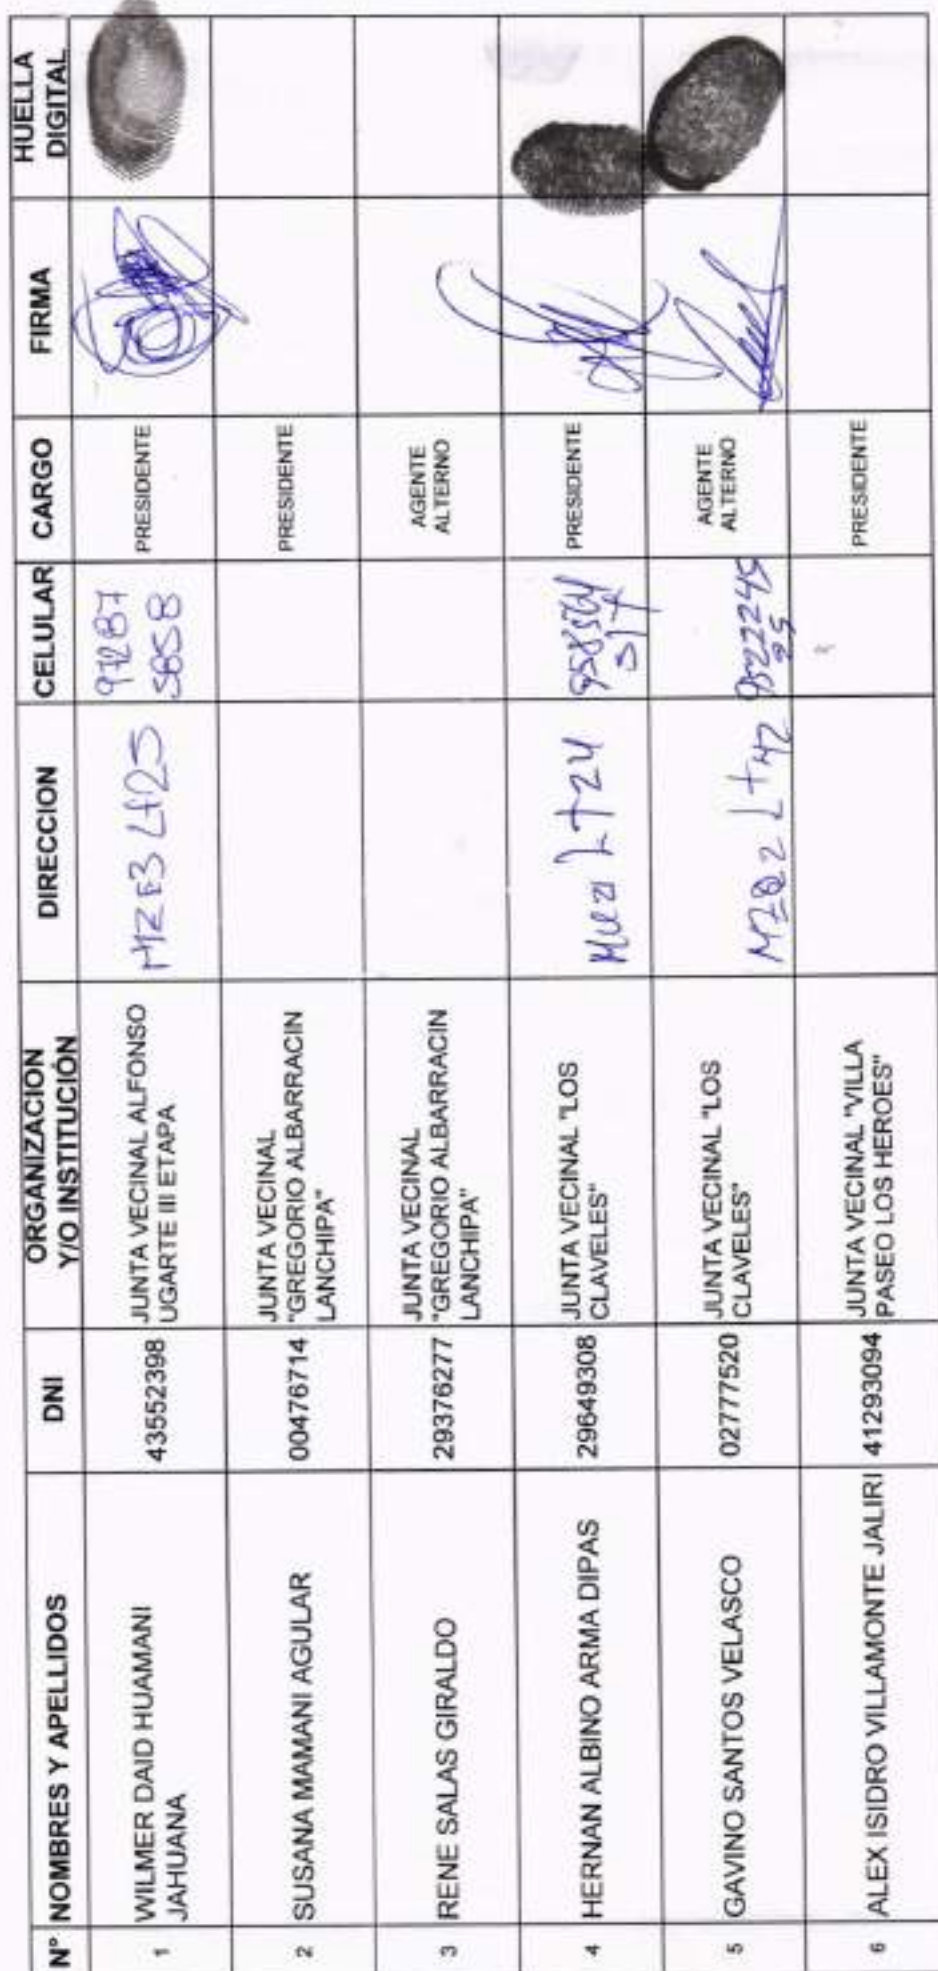 N° NOMBRES Y APELLIDOS DNI ORGANIZACION Y/O INSTITUCIÓN DIRECCION CELULAR CARGO FIRMA HUELLA DIGITAL
1 WILMER DAID HUAMANI JAHUANA 43552398 JUNTA VECINAL ALFONSO UGARTE III ETAPA MZ E3 Lt 25 PRESIDENTE
2 SUSANA MAMANI AGULAR 00476714 JUNTA VECINAL "GREGORIO ALBARRACIN LANCHIPA" PRESIDENTE
3 RENE SALAS GIRALDO 29376277 JUNTA VECINAL "GREGORIO ALBARRACIN LANCHIPA" AGENTE ALTERNO
4 HERNAN ALBINO ARMA DIPAS 29649308 JUNTA VECINAL "LOS CLAVELES" LT 24 PRESIDENTE
5 GAVINO SANTOS VELASCO 02777520 JUNTA VECINAL "LOS CLAVELES" 952224525 AGENTE ALTERNO
6 ALEX ISIDRO VILLAMONTE JALIRI 41293094 JUNTA VECINAL "VILLA PASEO LOS HEROES" PRESIDENTE